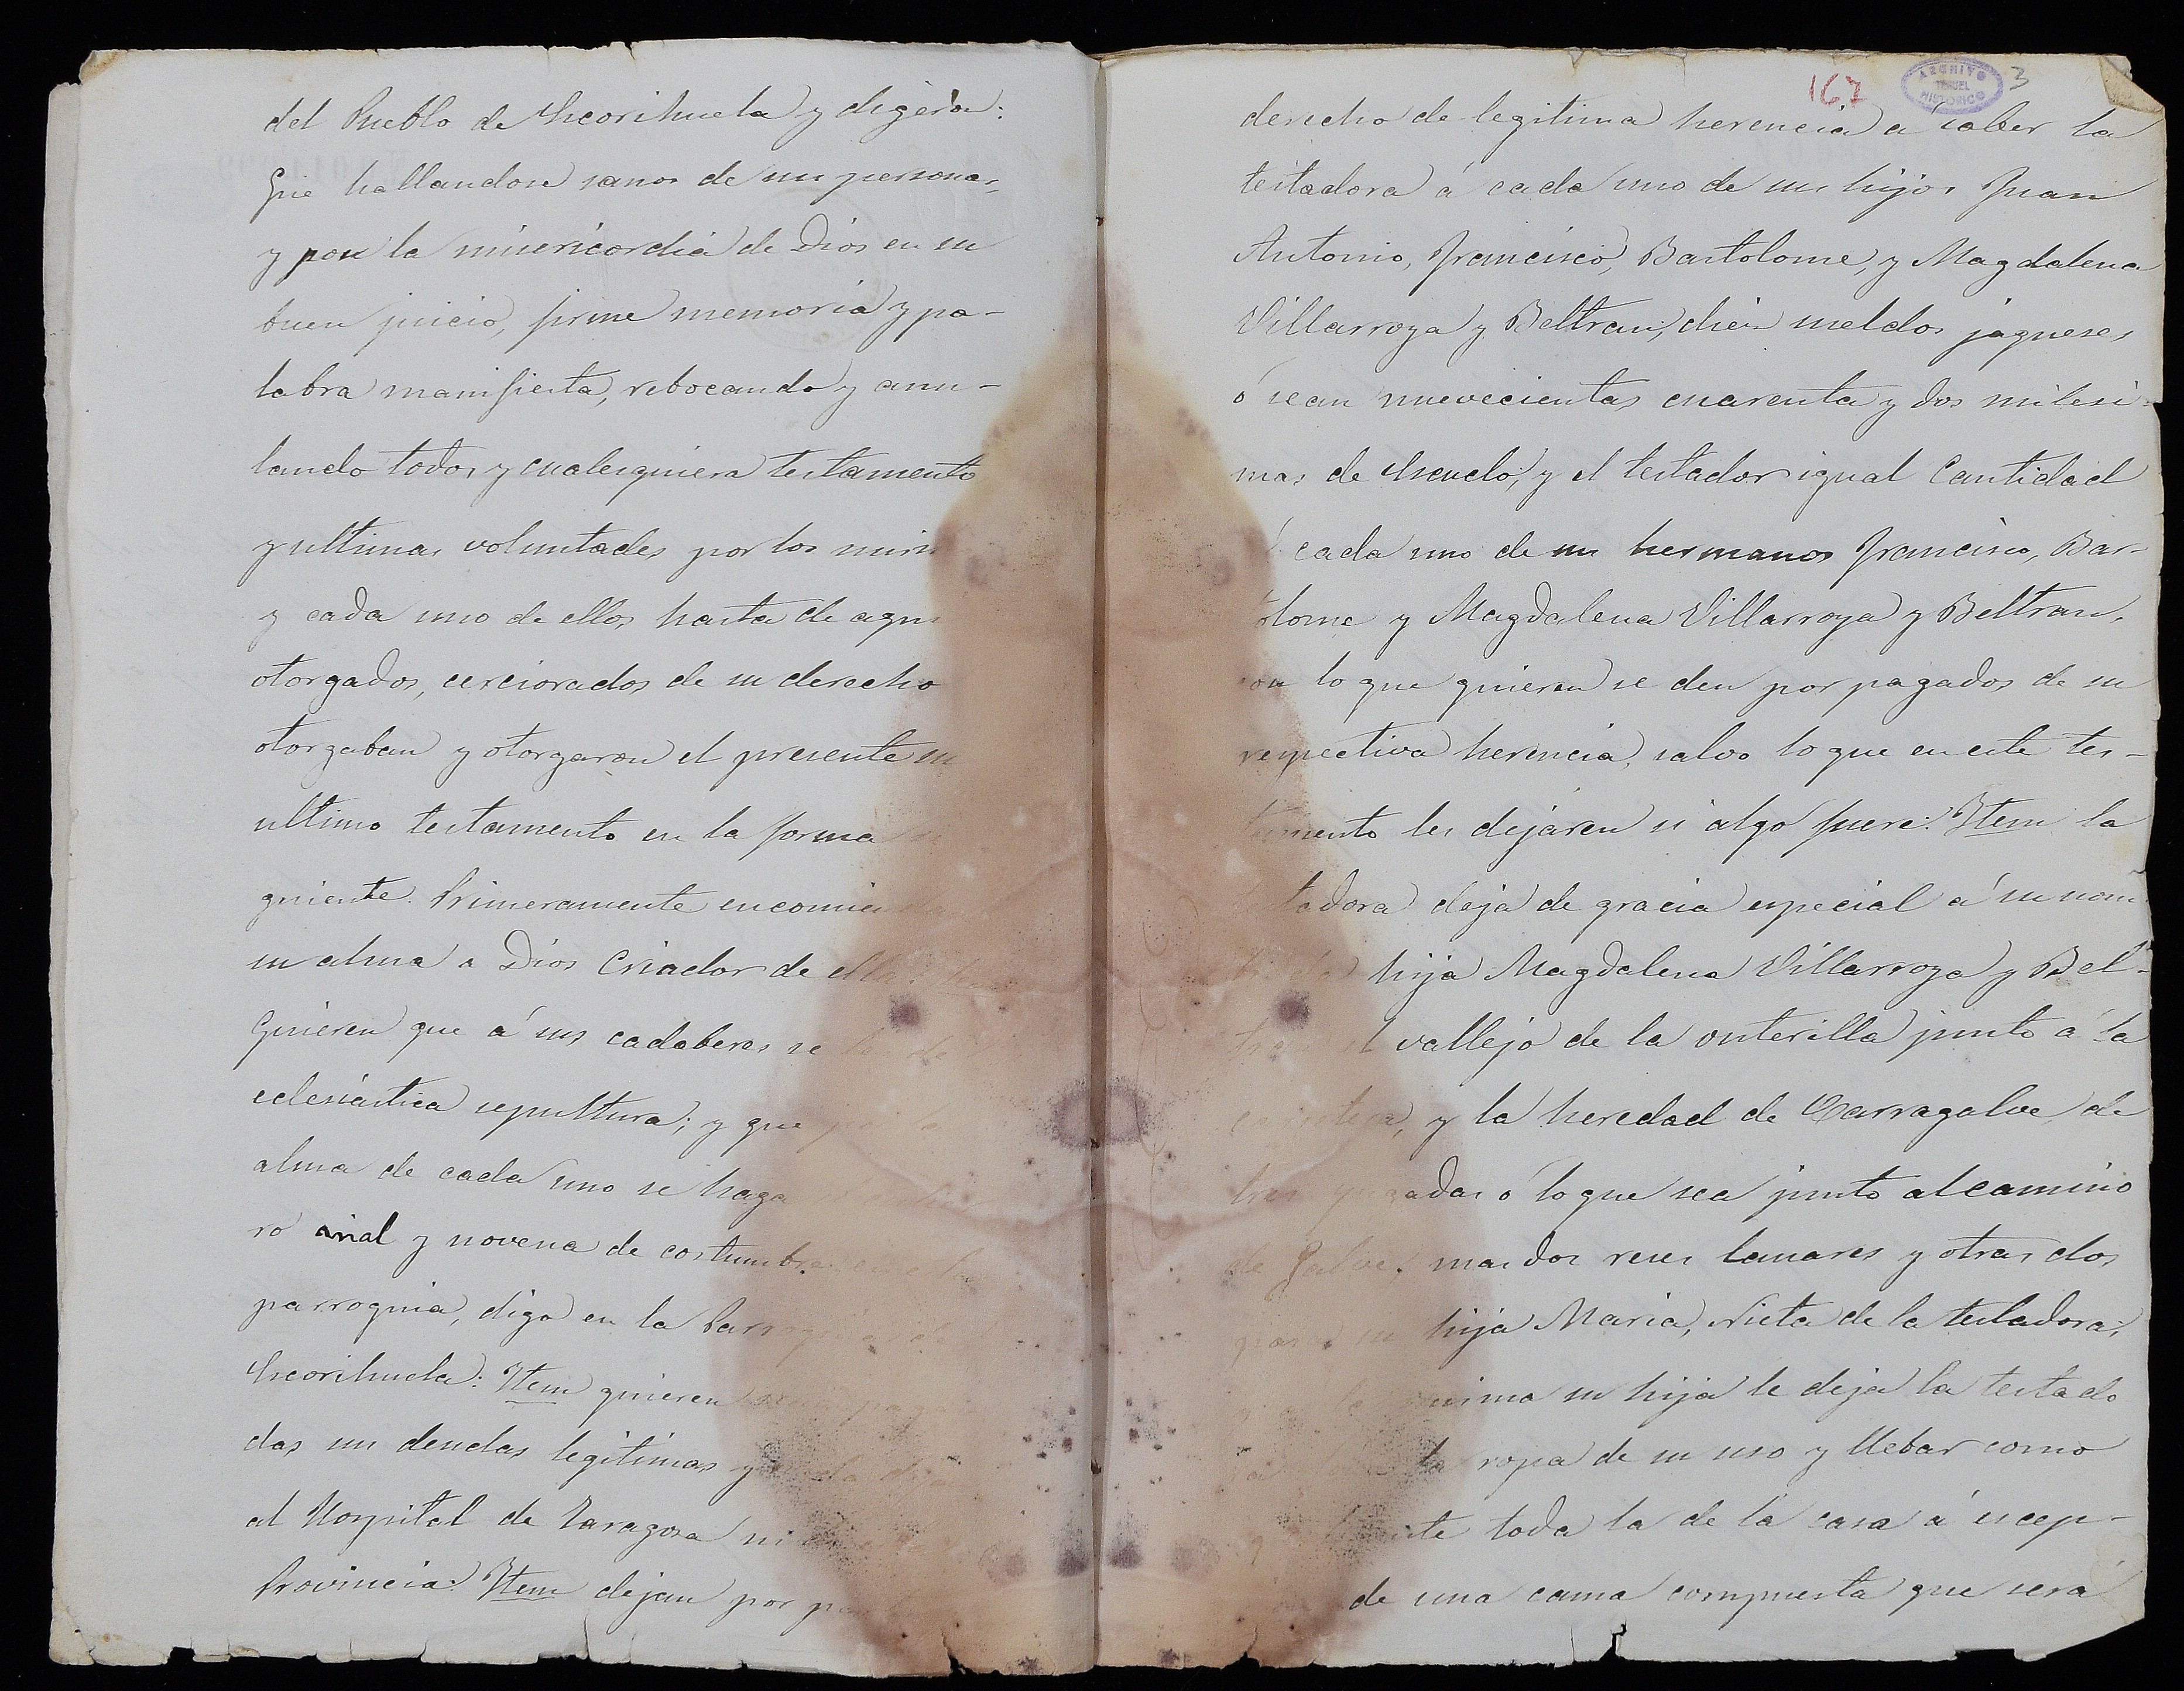 del Pueblo de Escorihuela y digeron:
Que hallandose sanos de sus personas,
y por la misericordia de Dios en su
buen juicio, firme memoria y pa-
labra manifiesta, rebocando y anu-
lando todos y cualesquiera testamento
y ultimas voluntades por los mism
y cada uno de ellos hasta de aqui
otorgados, cerciorados de su derecho
otorgaban y otorgaron el presente su
ultimo testamento en la forma si
guiente. Primeramente encomien
su alma a Dios Criador de ella:
Quieren que á sus cadaberes se les dé
eclesiástica sepultura; y que por el
alma de cada uno se haga
ro añal y novena de costumbre en la
parroquia, digo en la Parroquia de
Escorihuela: Item quieren sean paga
das sus deudas legitimas y nada dejan
al Hospital de Zaragoza ni
Provincia: Item dejan por par
167
ARCHIVO HISTORICO TERUEL
3
derecho de legitima herencia a saber la
testadora á cada uno de sus hijos Juan
Antonio, Francisco, Bartolome, y Magdalena
Villarroya y Beltran, diez sueldos jaqueses
ó sean nuevecientas cuarenta y dos milesi-
mas de Escudo, y el testador igual Cantidad
á cada uno de sus hermanos Francisco, Bar-
tolome y Magdalena Villarroya y Beltran,
con lo que quieren se den por pagados de su
respectiva herencia, salvo lo que en este tes-
tamento les dejaren si algo fuere: Item la
testadora deja de gracia especial á su nom
hija Magdalena Villarroya y Bel-
tran el vallejo de la onterilla junto á la
y la heredad de Carragalve, de
tres yugadas ó lo que sea junto al camino
de Galve, mas dos reses lanares y otras dos
para su hija Maria, Nieta de la testadora;
y a la misma su hija le deja la testado
ra la ropa de su uso y llebar como
toda la de la casa á escep-
de una cama compuesta que será